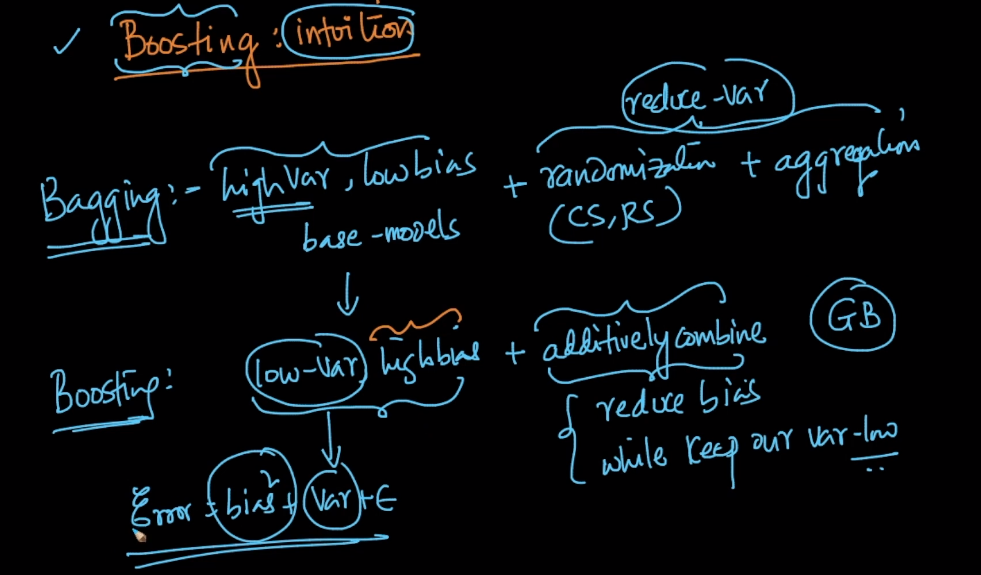 ✓ Boosting : intuition
reduce-var
Bagging:- high Var, low bias + randomization + aggregation
base-models (CS, RS)
↓
Boosting: low-var high bias + additively combine GB
reduce bias
while keep our var-low
Error = bias² + Var + ϵ